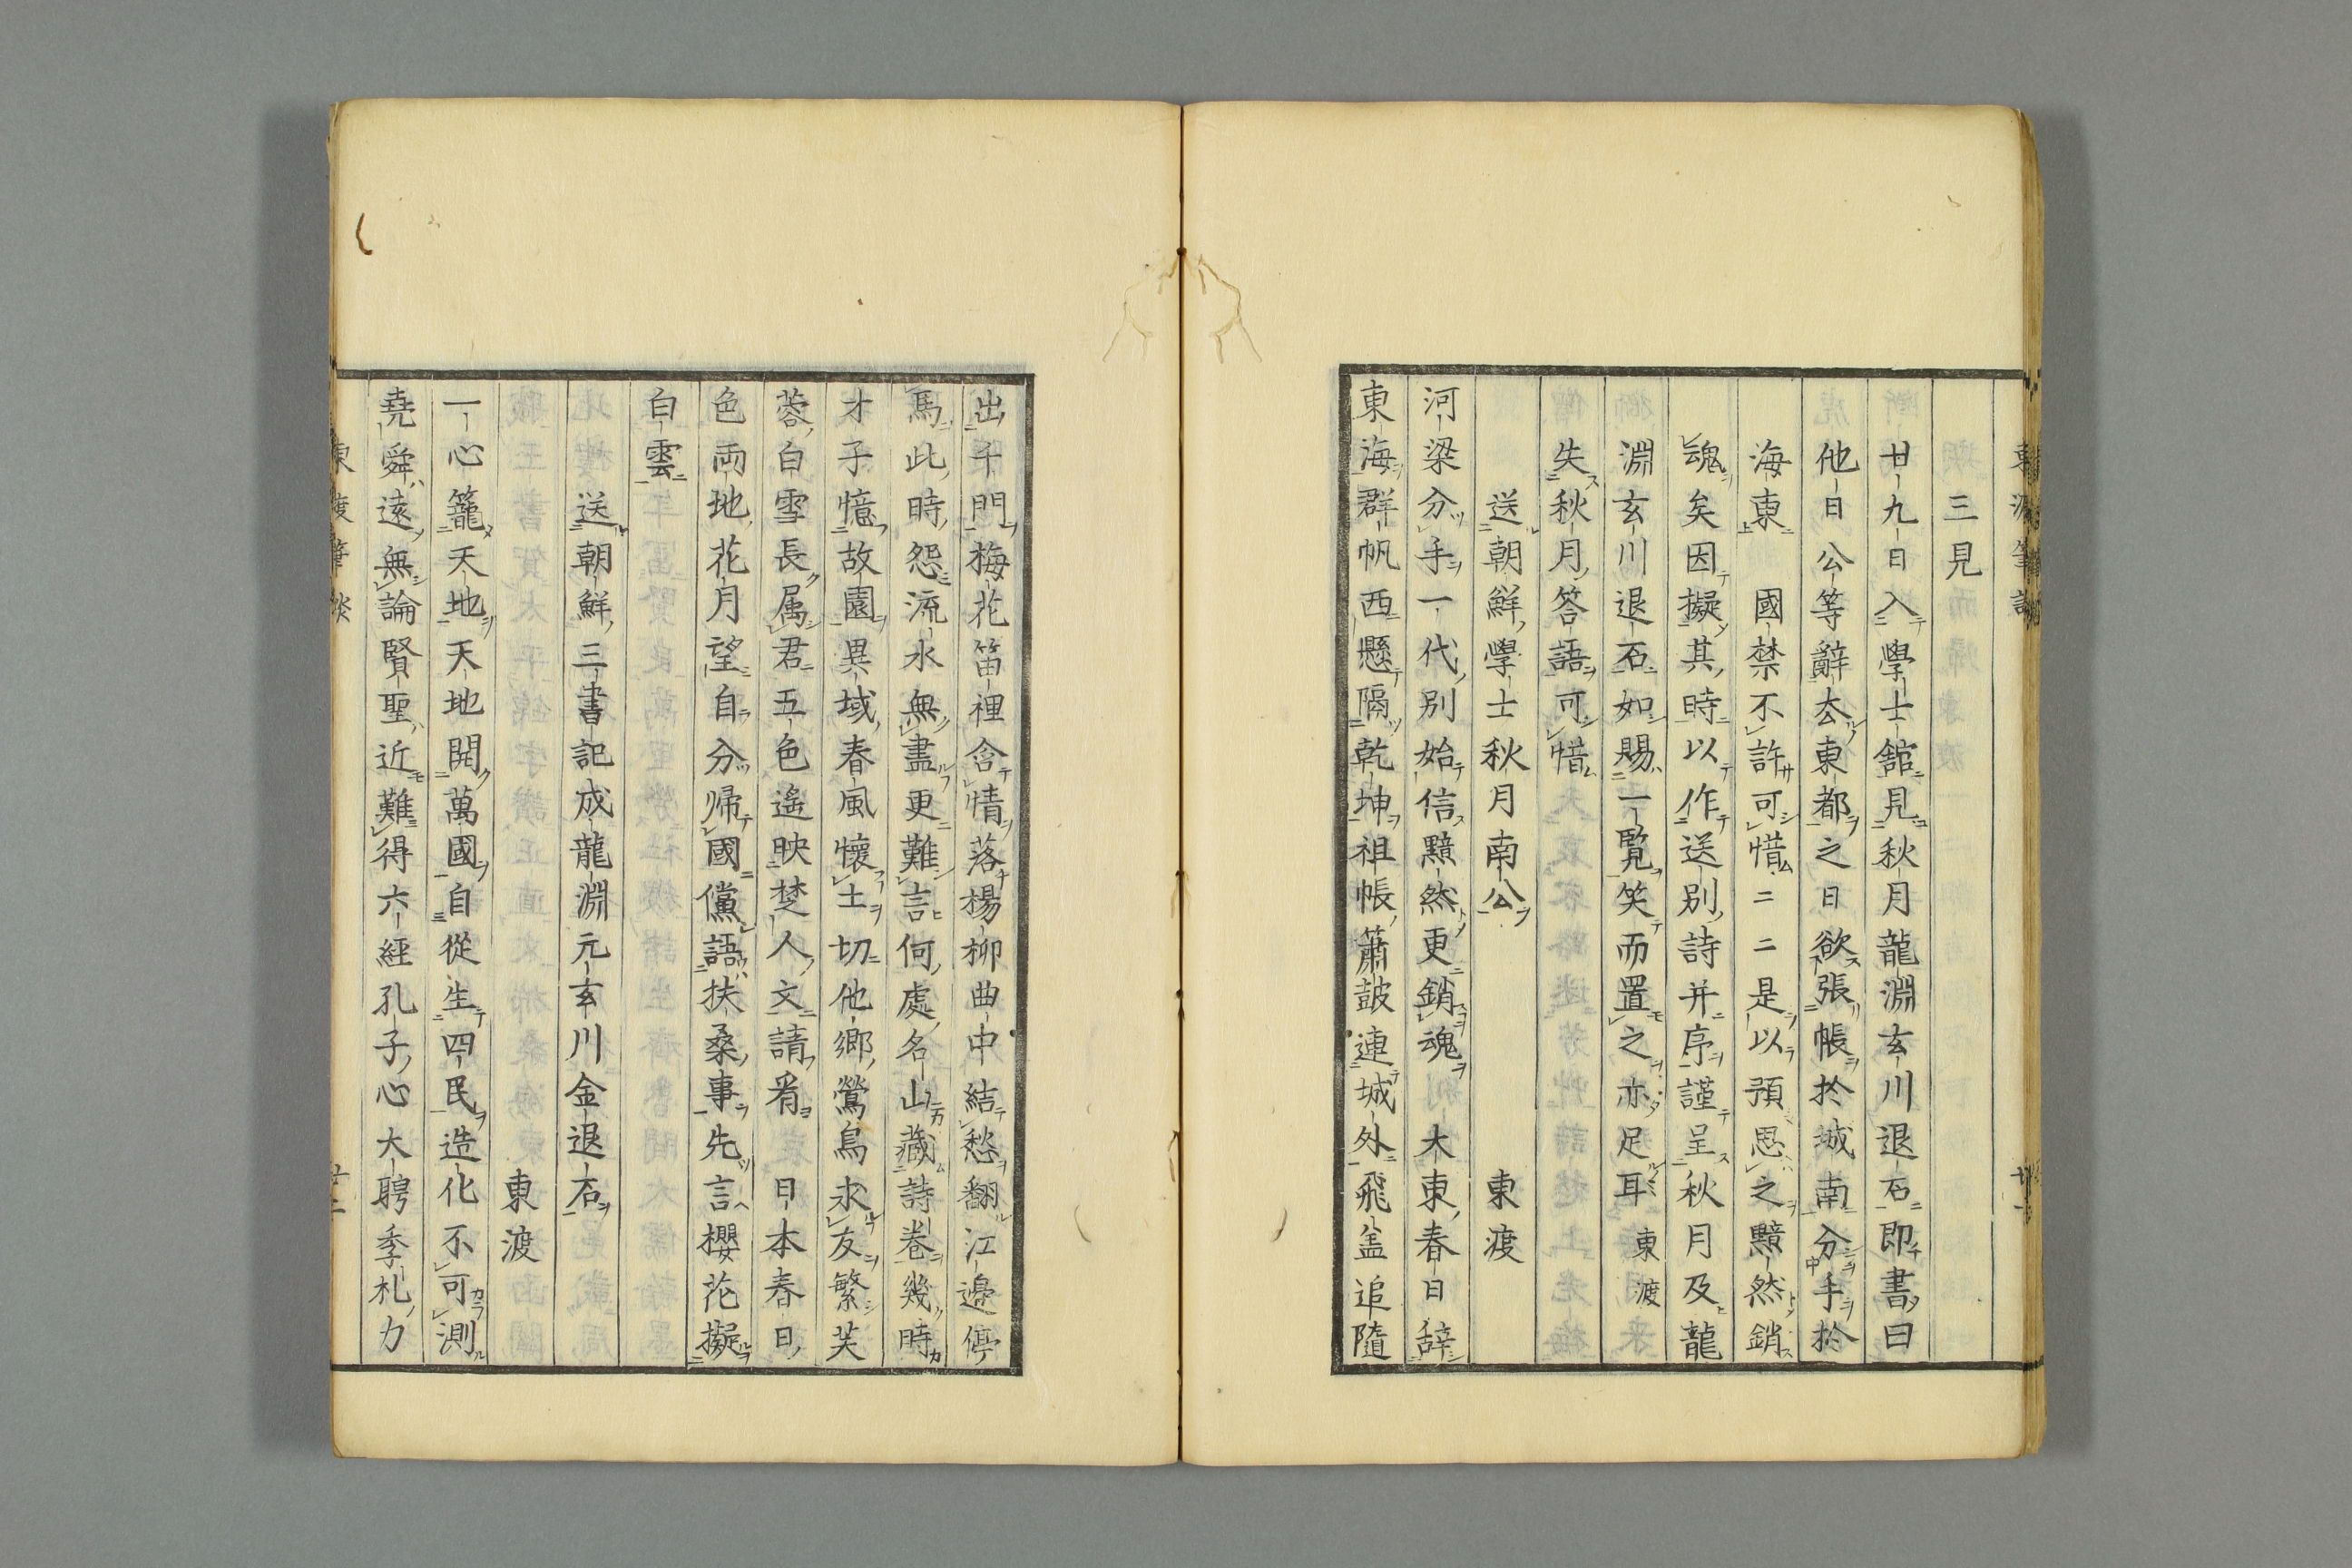 三見
廿九日入學士舘見秋月龍淵玄川退石即書曰
他日公等辭去東都之日欲張帳於城南分手於
海東 國禁不許可惜二二是以預思之黯然銷
魂矣因擬其時以作送別詩并序謹呈秋月及龍
淵玄川退石如賜一覧笑而置之亦足耳 東渡
失秋月答語可惜
送朝鮮學士秋月南公 東渡
河梁分手一代別始信黯然更銷魂大東春日辞
東海群帆西懸隔乾坤祖帳簫鼓連城外飛盖追隨
出千門梅花笛裡含情落楊柳曲中結愁翻江邊停
馬此時怨流水無盡更難言何處名山藏詩卷幾時
才子憶故園異域春風懷土切他鄉鶯鳥求友繁芙
蓉白雪長属君五色遙映楚人文請看日本春日
色両地花月望自分帰國儻語扶桑事先言櫻花擬
白雲
送朝鮮三書記成龍淵元玄川金退石
東渡
一心籠天地天地開萬國自從生四民造化不可測
堯舜遠無論賢聖近難得六經孔子心大聘季札力
東渡筆談
廿二